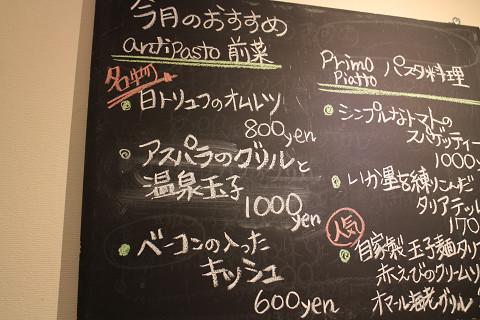 今月のおすすめ
antipasto 前菜
名物
白トリュフのオムレツ
800yen
アスパラのグリルと
温泉玉子
1000
yen
ベーコンの入った
キッシュ
600yen
Primo
Piatto パスタ料理
シンプルなトマトの
スパゲッティー
1000
いか墨を練りこんだ
タリアテッ
170
人気
自家製 玉子麺タリ
赤えびのクリームソ
オマール海老グリル